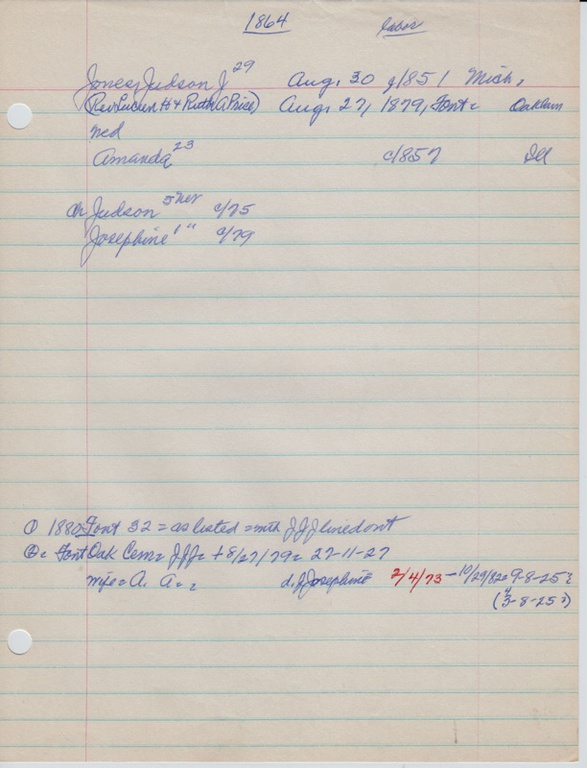 1864 labor
Jones, Judson J 29 Aug. 30 c/1851 Mich,
(Rev Lucien H & Ruth A Price) Aug. 27, 1879, Font = Oaklawn
ned
Amanda 23 c/1857 Ill
ch Judson 5 c/75
Josephine 1 " c/79
① 1880 Font 32 = as listed = with JJJ
② = Font Oak Cem = JJJ = + 8/27/79 = 27-11-27
wife = A. A = = d. J Josephine 2/4/73 – 10/29/82 = 9-8-25?
(3-8-25?)